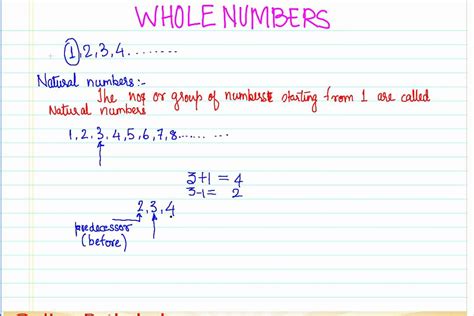 WHOLE NUMBERS
1, 2, 3, 4........
Natural numbers:-
The nos or group of numbers starting from 1 are called
Natural numbers
1, 2, 3, 4, 5, 6, 7, 8.........
3+1 = 4
3-1= 2
2, 3, 4
predecessor
(before)